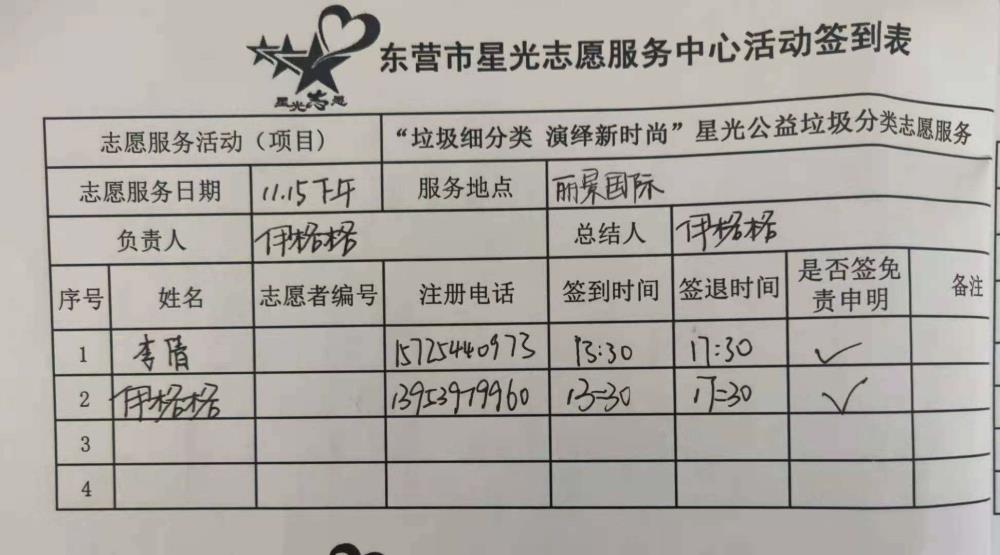 星光志愿
东营市星光志愿服务中心活动签到表
志愿服务活动（项目） “垃圾细分类 演绎新时尚”星光公益垃圾分类志愿服务
志愿服务日期 11.15下午 服务地点 丽景国际
负责人 伊格格 总结人 伊格格
序号 姓名 志愿者编号 注册电话 签到时间 签退时间 是否签免责申明 备注
1 李倩 15725440973 13:30 17:30 ✓
2 伊格格 13953979960 13:30 17:30 ✓
3
4